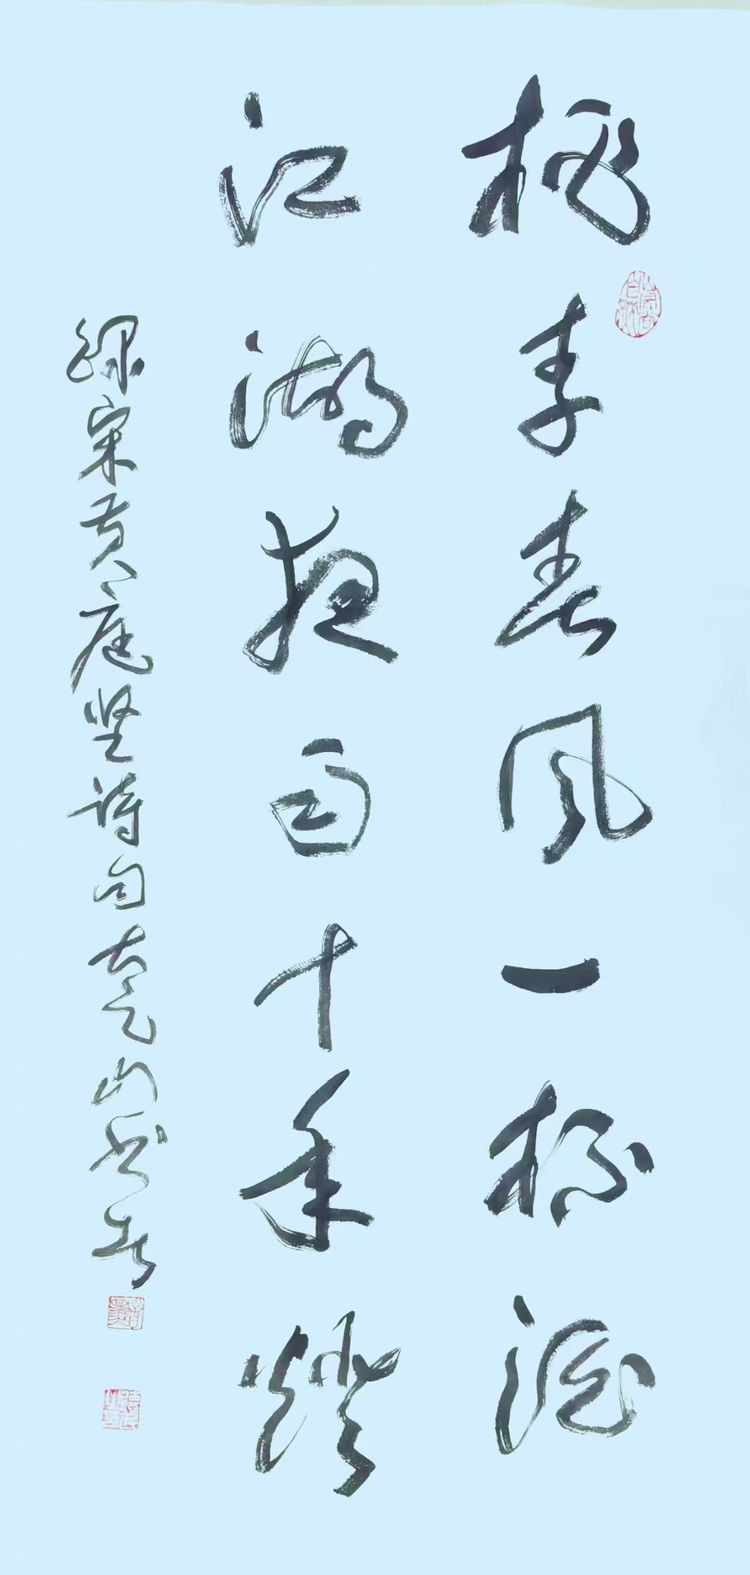 桃李春风一杯酒
江湖夜雨十年灯
录宋黄庭坚诗句 山书